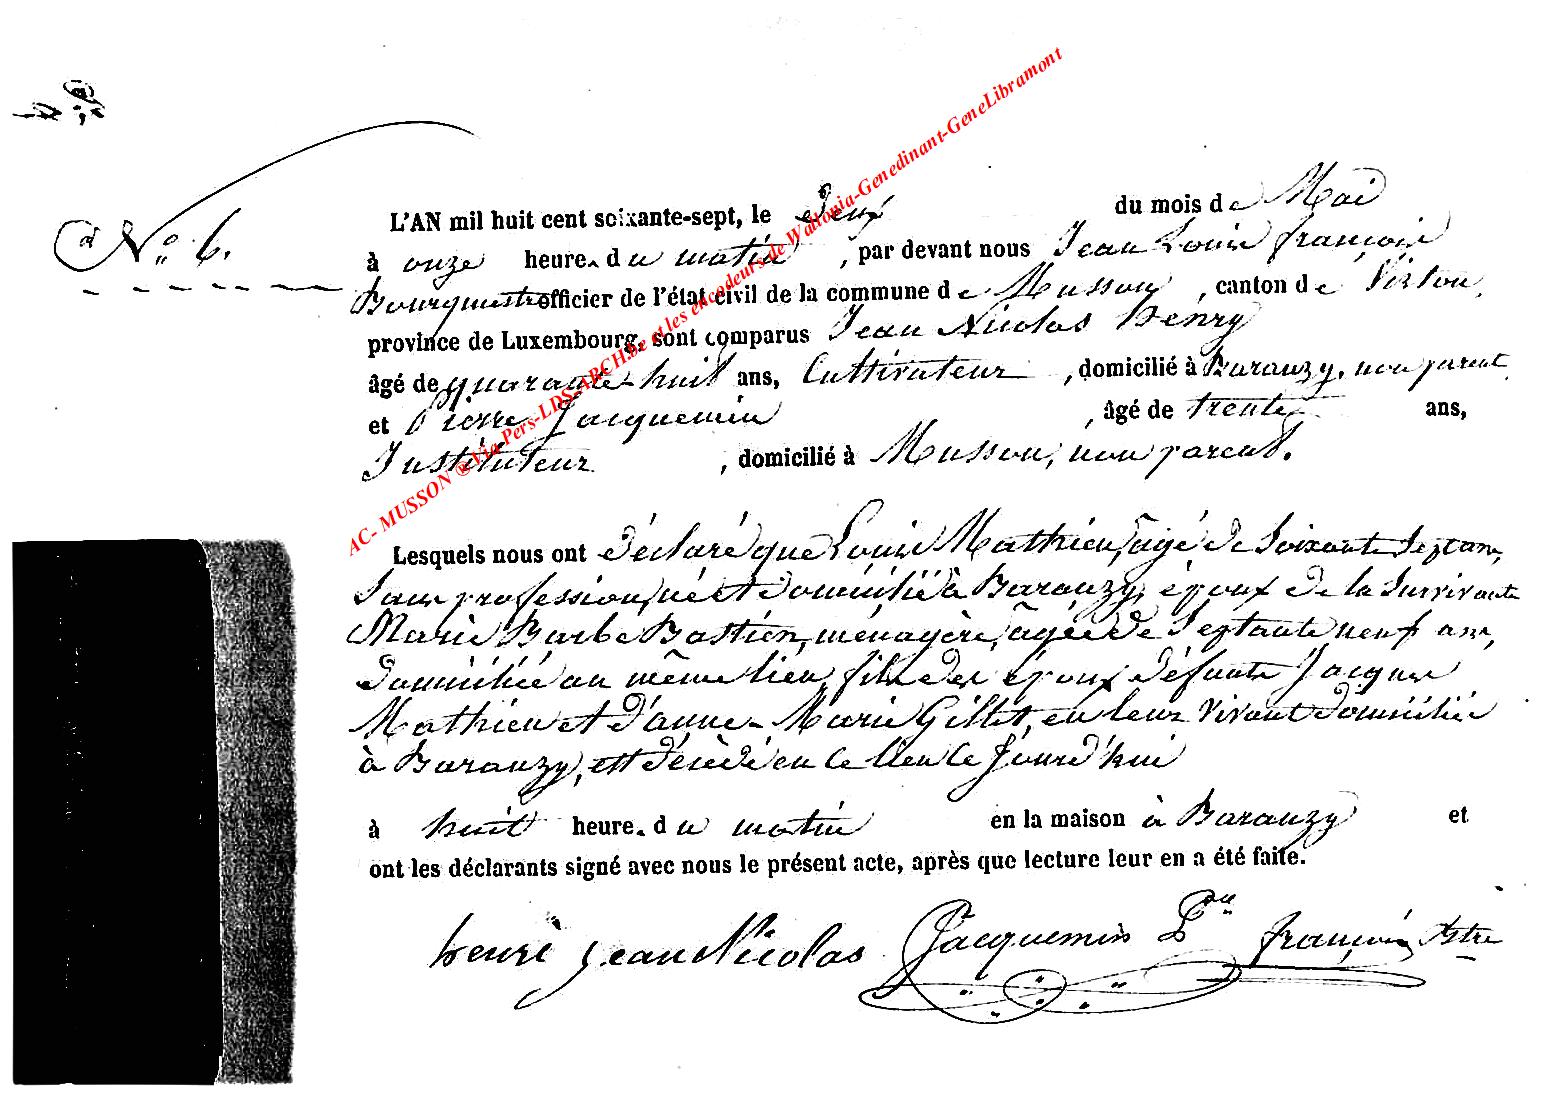 AC- MUSSON ® Via Pers-LDS-ARCH.be et les encodeurs de Wallonia-Genedinant-GeneLibramont
N° 6.
L'AN mil huit cent soixante-sept, le deux du mois de Mai
à onze heure. du matin, par devant nous Jean Louis françois
Bourgmestre officier de l'état civil de la commune de Musson, canton de Virton,
province de Luxembourg, sont comparus Jean Nicolas Henry
âgé de quarante-huit ans, Cultivateur, domicilié à Baranzy, non parent
et Pierre Jacquemin, âgé de trente ans,
Instituteur, domicilié à Musson, non parent.
Lesquels nous ont déclaré que Louis Mathieu, âgé de Soixante Sept ans,
Sans profession, né et domicilié à Baranzy, époux de la Survivante
Marie Barbe Bastien, ménagère, âgée de Septante neuf ans,
domiciliée au même lieu, fils des époux défunts Jacques
Mathieu et d'anne-Marie Gillet, en leur vivant domiciliés
à Baranzy, est décédé en ce lieu le Jourd'hui
à huit heure. du matin en la maison à Baranzy et
ont les déclarants signé avec nous le présent acte, après que lecture leur en a été faite.
henri jean Nicolas Jacquemin P.re françois